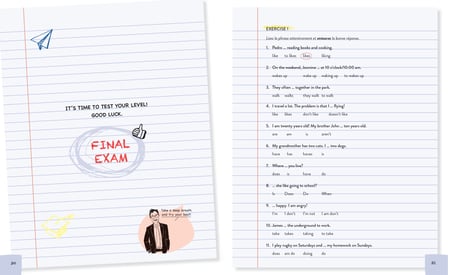 IT'S TIME TO TEST YOUR LEVEL!
GOOD LUCK.
FINAL
EXAM
Take a deep breath,
and try your best!
EXERCISE 1
Lisez la phrase attentivement et entourez la bonne réponse.
1. Pedro ... reading books and cooking.
like to likes likes liking
2. On the weekend, Jasmine ... at 10 o'clock/10:00 am.
wakes up wake up waking up to wakes up
3. They often ... together in the park.
walk walks they walk to walk
4. I travel a lot. The problem is that I ... flying!
like likes don't like doesn't like
5. I am twenty years old! My brother John ... ten years old.
are am is aren't
6. My grandmother has two cats. I ... two dogs.
have has haves is
7. Where ... you live?
does is have do
8. ... she like going to school?
Is Does Do When
9. ... happy. I am angry!
I'm I don't I'm not I am don't
10. James ... the underground to work.
take takes taking to take
11. I play rugby on Saturdays and ... my homework on Sundays.
does am do doing do